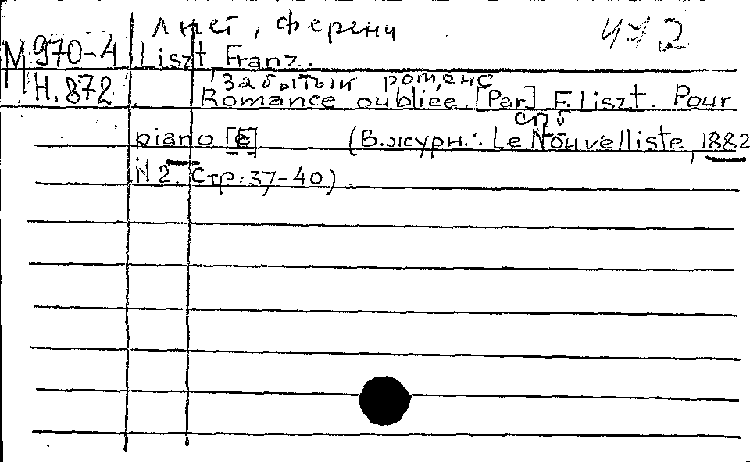 Лист, Ференц
М 970-4 Liszt, Franz.
Н.872 Забытый романс
Romance oubliée. [Par] F. Liszt. Pour
СПб
piano [E] (В журн.: Le Nouvelliste, 1882
N 2. Стр. 37-40).